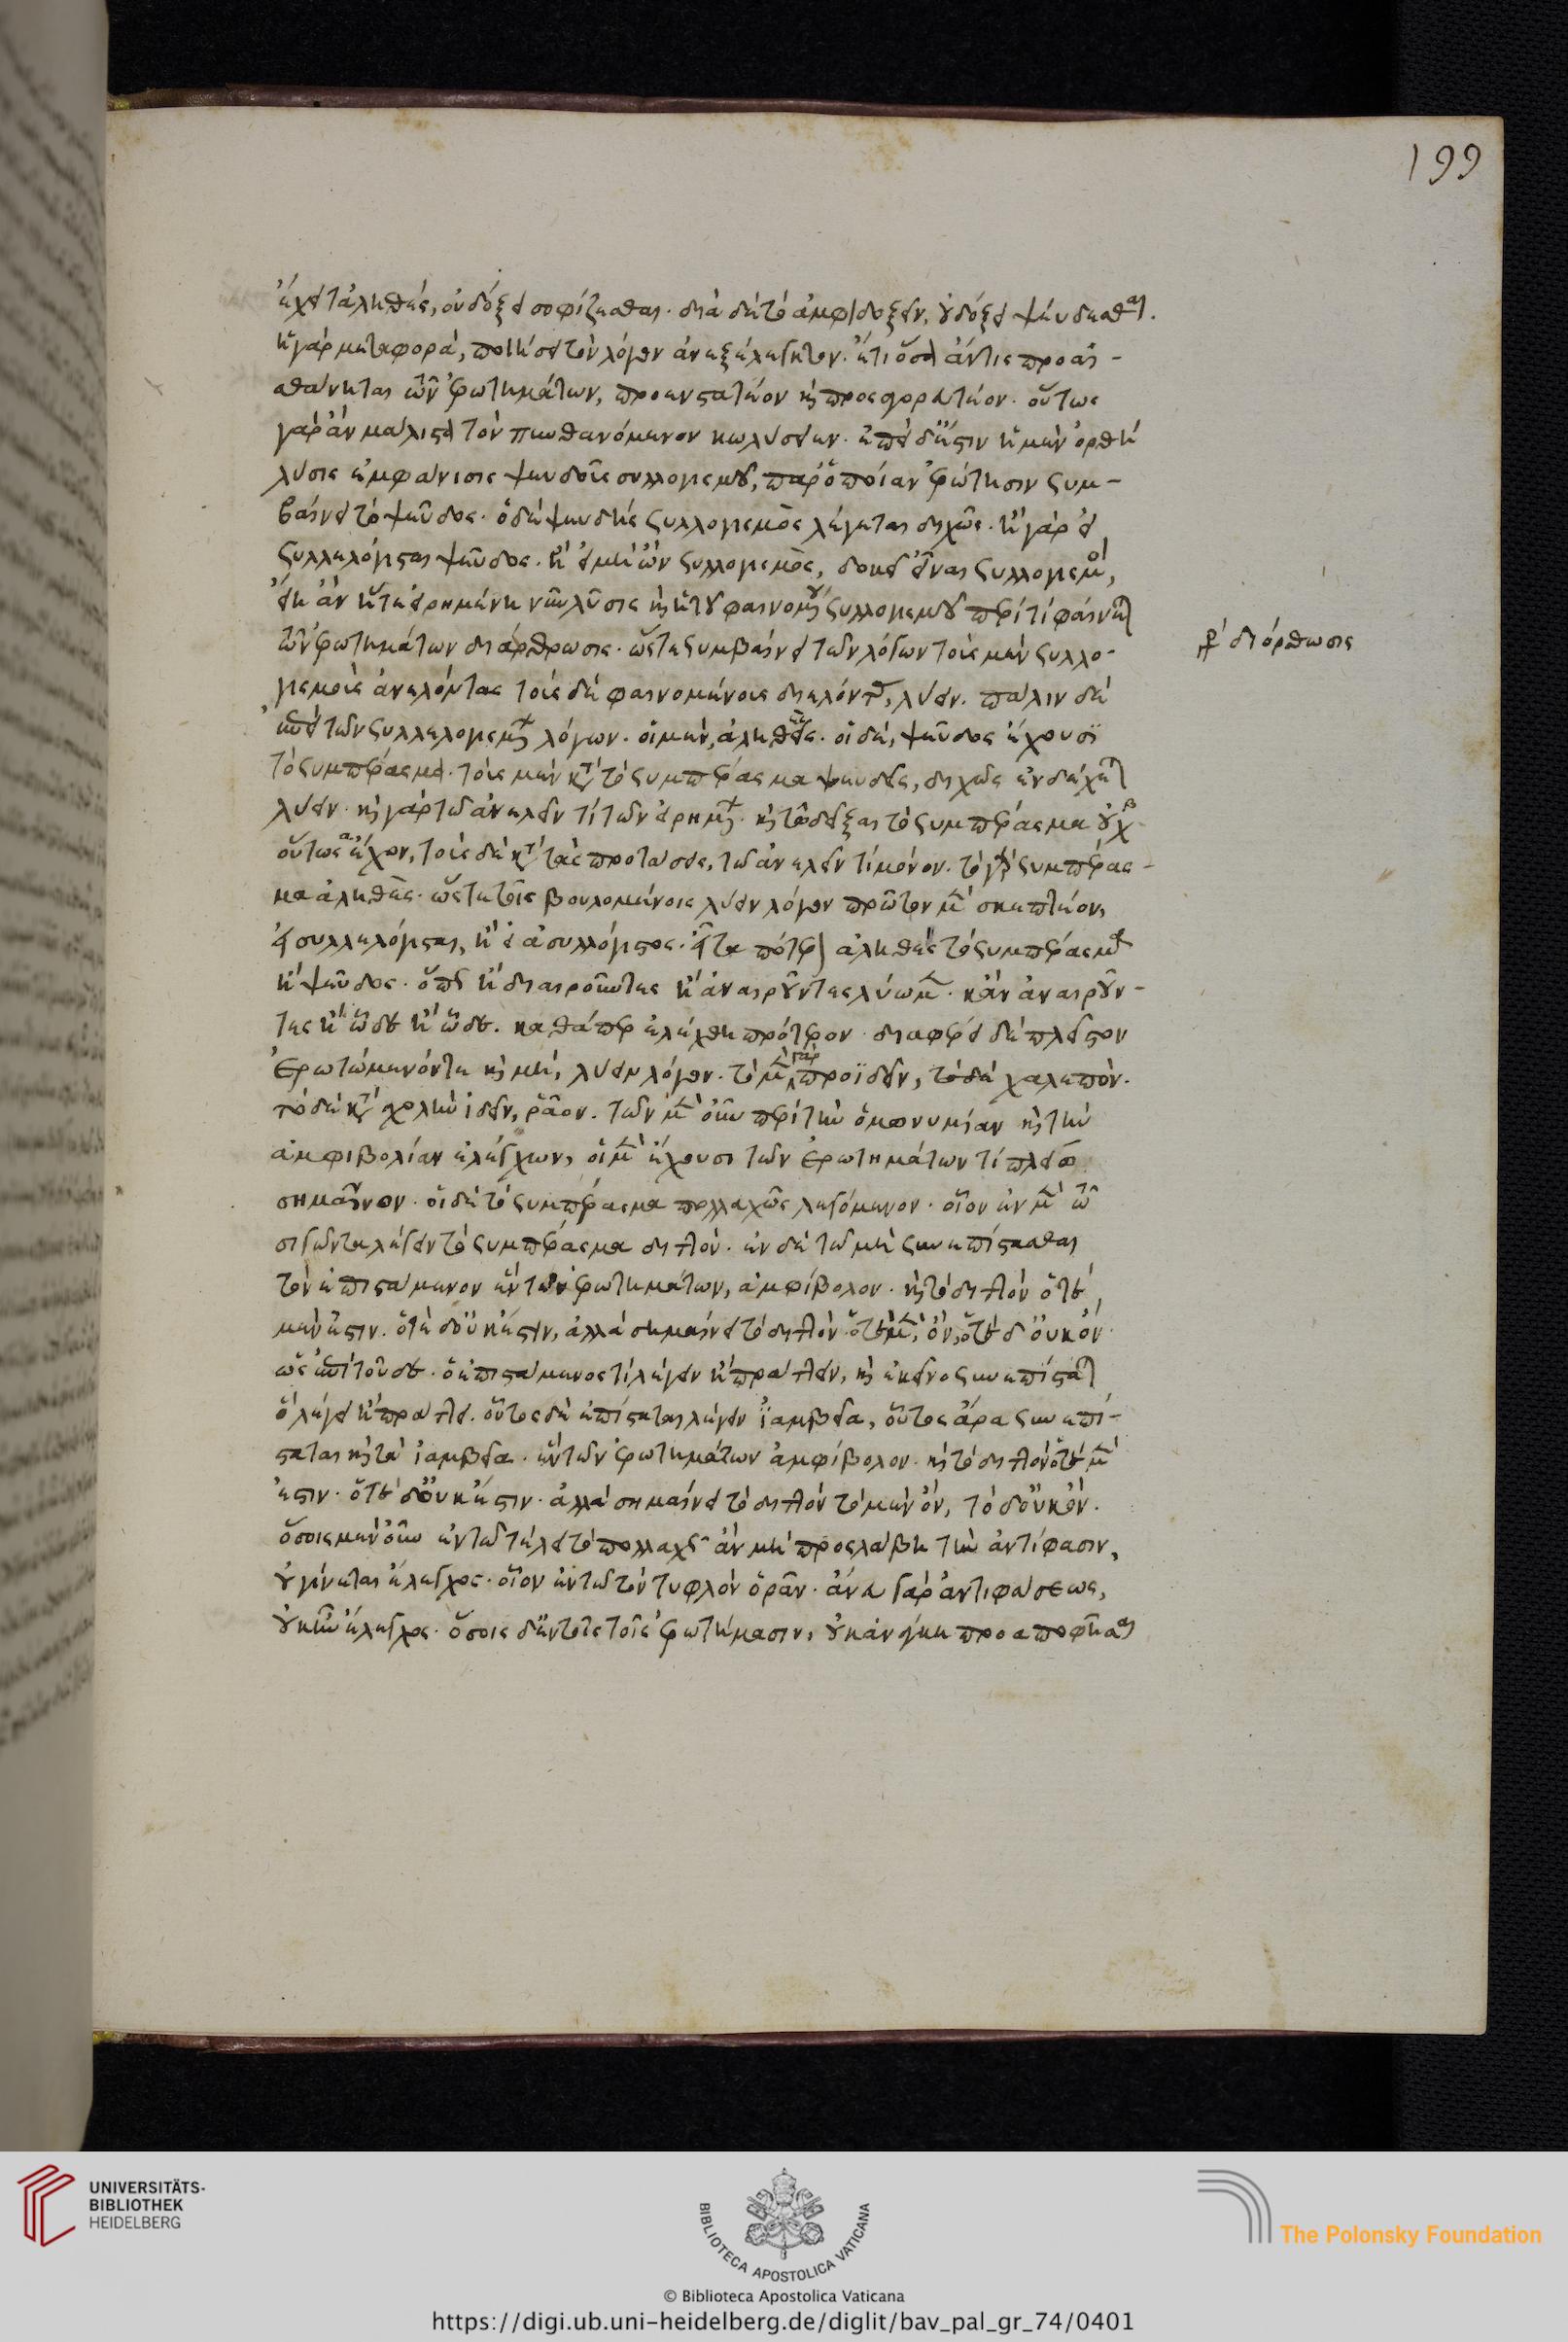 ἔχει τἀληθές, οὐ δόξει σοφίζεσθαι. διὰ δὲ τὸ ἀμφιδοξεῖν, οὐ δόξει ψεύδεσθαι.
ἡ γὰρ μεταφορὰ, ποιήσει τὸν λόγον ἀνεξέλεγκτον. ἔτι ὅσα ἄν τις προαι-
σθάνηται τῶν ἐρωτημάτων, προενστατέον καὶ προσαγορευτέον. οὕτως
γὰρ ἂν μάλιστα τὸν πυνθανόμενον κωλύσειεν. ἐπεὶ δ' ἔστιν ἡ μὲν ὀρθὴ
λύσις ἐμφάνισις ψευδοῦς συλλογισμοῦ, παρ' ὁποίαν ἐρώτησιν συμ-
βαίνει τὸ ψεῦδος. ὁ δὲ ψευδὴς συλλογισμὸς λέγεται διχῶς. ἢ γὰρ εἰ
συλλελόγισται ψεῦδος. ἢ εἰ μὴ ὢν συλλογισμὸς, δοκεῖ εἶναι συλλογισμός,
εἴη ἂν ἥ τε εἰρημένη νῦν λύσις καὶ ἡ τοῦ φαινομένου συλλογισμοῦ περὶ τί φαίνεται
τῶν ἐρωτημάτων διάρθρωσις. ὥστε συμβαίνει τῶν λόγων τοὺς μὲν συλλο-
γισμοὺς ἀνελόντας τοὺς δὲ φαινομένους διελόντα, λύειν. πάλιν δὲ
ἐπεὶ τῶν συλλελογισμένων λόγων. οἱ μὲν, ἀληθὲς. οἱ δὲ, ψεῦδος ἔχουσι
τὸ συμπέρασμα. τοὺς μὲν κατὰ τὸ συμπέρασμα ψευδεῖς, διχῶς ἐνδέχεται
λύειν. καὶ γὰρ τῶ ἀνελεῖν τί τῶν εἰρημένων. καὶ τῶ δεῖξαι τὸ συμπέρασμα οὐχ
οὕτως ἔχον, τοὺς δὲ κατὰ τὰς προτάσεις, τῶ ἀνελεῖν τί μόνον. τὸ γὰρ συμπέρασ-
μα ἀληθὲς. ὥστε τοῖς βουλομένοις λύειν λόγον πρῶτον μὲν σκεπτέον,
εἰ συλλελόγισται, ἢ ἀσυλλόγιστος. εἶτα πότερον ἀληθὲς τὸ συμπέρασμα
ἢ ψεῦδος. ὅπως ἢ διαιροῦντες ἢ ἀναιροῦντες λύωμεν. κἂν ἀναιροῦν-
τες ἢ ὧδε ἢ ὧδε. καθάπερ ἐλέχθη πρότερον. διαφέρει δὲ πλεῖστον
ἐρωτώμενόν τε καὶ μὴ, λύειν λόγον. τὸ μὲν γὰρ προϊδεῖν, τὸ δὲ χαλεπὸν.
τὸ δὲ κατὰ σχολὴν ἰδεῖν, ῥᾶον. τῶν μὲν οὖν περὶ τὴν ὁμωνυμίαν καὶ τὴν
ἀμφιβολίαν ἐλέγχων, οἱ μὲν ἔχουσι τῶν ἐρωτημάτων τί πλείω
σημαῖνον. οἱ δὲ τὸ συμπέρασμα πολλαχῶς λεγόμενον. οἷον ἐν μὲν τῶ
σιγῶντα λέγειν τὸ συμπέρασμα διττόν. ἐν δὲ τῶ μὴ συνεπίστασθαι
τὸν ἐπιστάμενον ἓν τῶν ἐρωτημάτων, ἀμφίβολον. καὶ τὸ διττὸν ὁτὲ
μὲν ἔστιν. ὁτὲ δ' οὐκ ἔστιν, ἀλλὰ σημαίνει τὸ διττὸν ὁτὲ μὲν, ὂν, ὁτὲ δ' οὐκ ὄν.
ὡς ἐπὶ τοῦδε. ὁ ἐπιστάμενος τί λέγειν ἢ πράττειν, καὶ ἐκεῖνο συνεπίσταται
ὃ λέγει ἢ πράττει. οὗτος δὲ ἐπίσταται λέγειν ἰαμβεῖα, οὗτος ἄρα συνεπί-
σταται καὶ τὰ ἰαμβεῖα. ἓν τῶν ἐρωτημάτων ἀμφίβολον. καὶ τὸ διττὸν ὁτὲ μὲν
ἔστιν. ὁτὲ δ' οὐκ ἔστιν. ἀλλὰ σημαίνει τὸ διττὸν τὸ μὲν ὄν, τὸ δ' οὐκ ὄν.
ὅσοις μὲν οὖν ἐν τῶ τέλει τὸ πολλαχῶς ἂν μὴ προσλάβη τὴν ἀντίφασιν,
οὐ γίνεται ἔλεγχος. οἷον ἐν τῶ τὸν τυφλὸν ὁρᾶν. ἄνευ γὰρ ἀντιφάσεως,
οὐκ ἦν ἔλεγχος. ὅσοις δ' ἐν τοῖς τοῖς ἐρωτήμασιν, οὐκ ἀνάγκη προαποφῆσαι
γρ. διόρθωσις
199
UNIVERSITÄTS-
BIBLIOTHEK
HEIDELBERG
BIBLIOTECA APOSTOLICA VATICANA
The Polonsky Foundation
© Biblioteca Apostolica Vaticana
https://digi.ub.uni-heidelberg.de/diglit/bav_pal_gr_74/0401